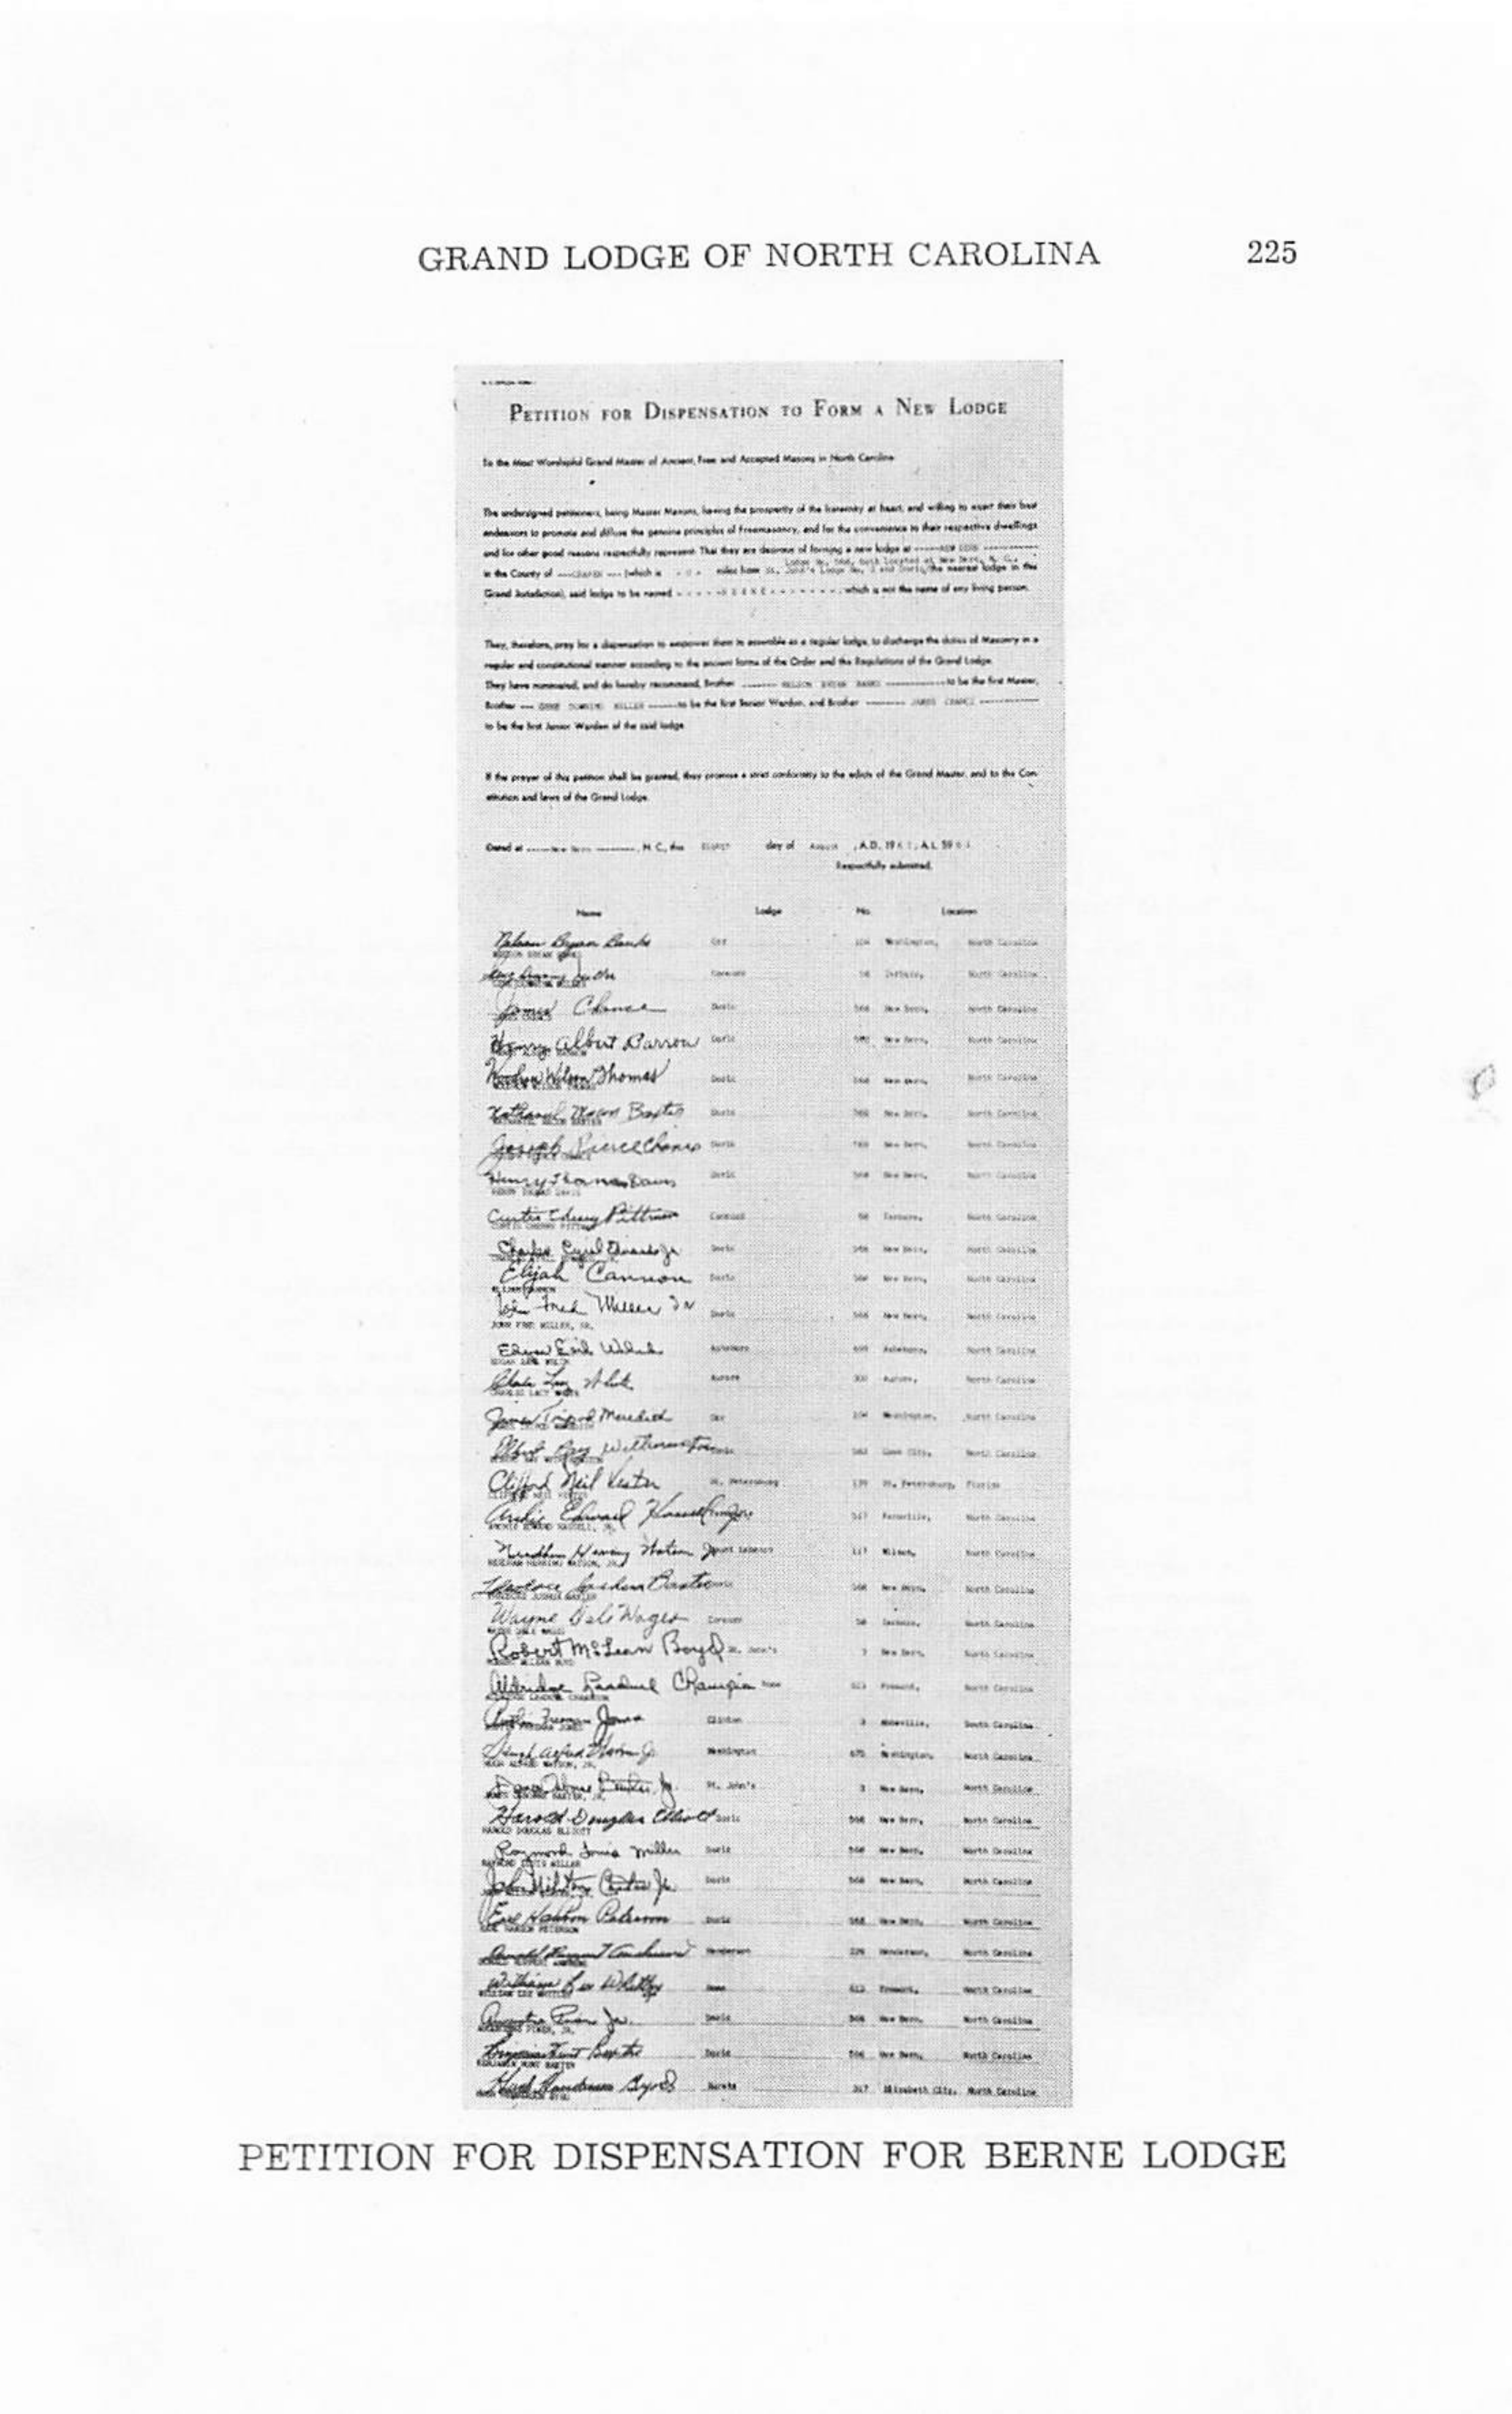 GRAND LODGE OF NORTH CAROLINA 225
PETITION FOR DISPENSATION TO FORM A NEW LODGE
To the Most Worshipful Grand Master of Ancient, Free and Accepted Masons in North Carolina
The undersigned petitioners, being Master Masons, having the prosperity of the fraternity at heart, and willing to exert their best
endeavors to promote and diffuse the genuine principles of Freemasonry, and for the convenience to their respective dwellings
and for other good reasons respectfully represent: That they are desirous of forming a new lodge at NEW BERN
Lodge No. 568, both located at New Bern, N. C.,
in the County of CRAVEN (which is - 0 - miles from St. John's Lodge No. 3 and Doric, the nearest lodge in this
Grand Jurisdiction), said lodge to be named - - - - - B E R N E - - - - - - -, which is not the name of any living person.
They, therefore, pray for a dispensation to empower them to assemble as a regular lodge, to discharge the duties of Masonry in a
regular and constitutional manner according to the ancient forms of the Order and the Regulations of the Grand Lodge.
They have nominated, and do hereby recommend, Brother NELSON BRYAN BANKS to be the first Master,
Brother GENE DOWNING MILLER to be the first Senior Warden, and Brother JAMES CHANCE
to be the first Junior Warden of the said lodge.
If the prayer of this petition shall be granted, they promise a strict conformity to the edicts of the Grand Master, and to the Con-
stitution and laws of the Grand Lodge.
Dated at New Bern, N. C., this EIGHTH day of August, A.D. 19, A.L. 59
Respectfully submitted,
Name Lodge No. Location
Nelson Bryan Banks Orr 104 Washington, North Carolina
James Chance Doric 568 New Bern, North Carolina
Henry Albert Barrow Doric 568 New Bern, North Carolina
Woodrow Wilson Thomas Doric 568 New Bern, North Carolina
Nathaniel Macon Baxter Doric 568 New Bern, North Carolina
Joseph Pierce Chance Doric 568 New Bern, North Carolina
Henry Thomas Davis Doric 568 New Bern, North Carolina
Curtis Cherry Pittman Concord 58 Tarboro, North Carolina
Charles Cyril Jr Doric 568 New Bern, North Carolina
Elijah Cannon Doric 568 New Bern, North Carolina
John Fred Miller Sr Doric 568 New Bern, North Carolina
JOHN FRED MILLER, SR.
Edgar Earl Welch Asheboro Asheboro, North Carolina
Charles Lacy White Aurora 300 Aurora, North Carolina
James Meredith Orr 104 Washington, North Carolina
Albert Ray Witherington North Carolina
Clifford Neil Vester St. Petersburg 139 St. Petersburg, Florida
Archie Edward Jr. 517 North Carolina
Needham Herring Watson Jr Mount Lebanon 117 Wilson, North Carolina
Theodore Joshua Baxter Doric 568 New Bern, North Carolina
Wayne Dale Wages Concord 58 Tarboro, North Carolina
Robert McLean Boyd St. John's 3 New Bern, North Carolina
Aldridge Champion 613 Fremont, North Carolina
Freeman Jones Clinton 3 Abbeville, South Carolina
Hugh Alfred Watson Jr. Washington 675 Washington, North Carolina
HUGH ALFRED WATSON, JR.
Baxter, Jr. St. John's 3 New Bern, North Carolina
Harold Douglas Elliott Doric 568 New Bern, North Carolina
HAROLD DOUGLAS ELLIOTT
Raymond Louis Miller Doric 568 New Bern, North Carolina
RAYMOND LOUIS MILLER
John Milton Jr. Doric 568 New Bern, North Carolina
Earl Peterson Doric 568 New Bern, North Carolina
Donald Henderson 229 Henderson, North Carolina
William Lee Whitley 613 Fremont, North Carolina
Jr. Doric 568 New Bern, North Carolina
Benjamin Hunt Baxter Doric 568 New Bern, North Carolina
BENJAMIN HUNT BAXTER
Hugh Henderson Byrd Eureka 317 Elizabeth City, North Carolina
PETITION FOR DISPENSATION FOR BERNE LODGE